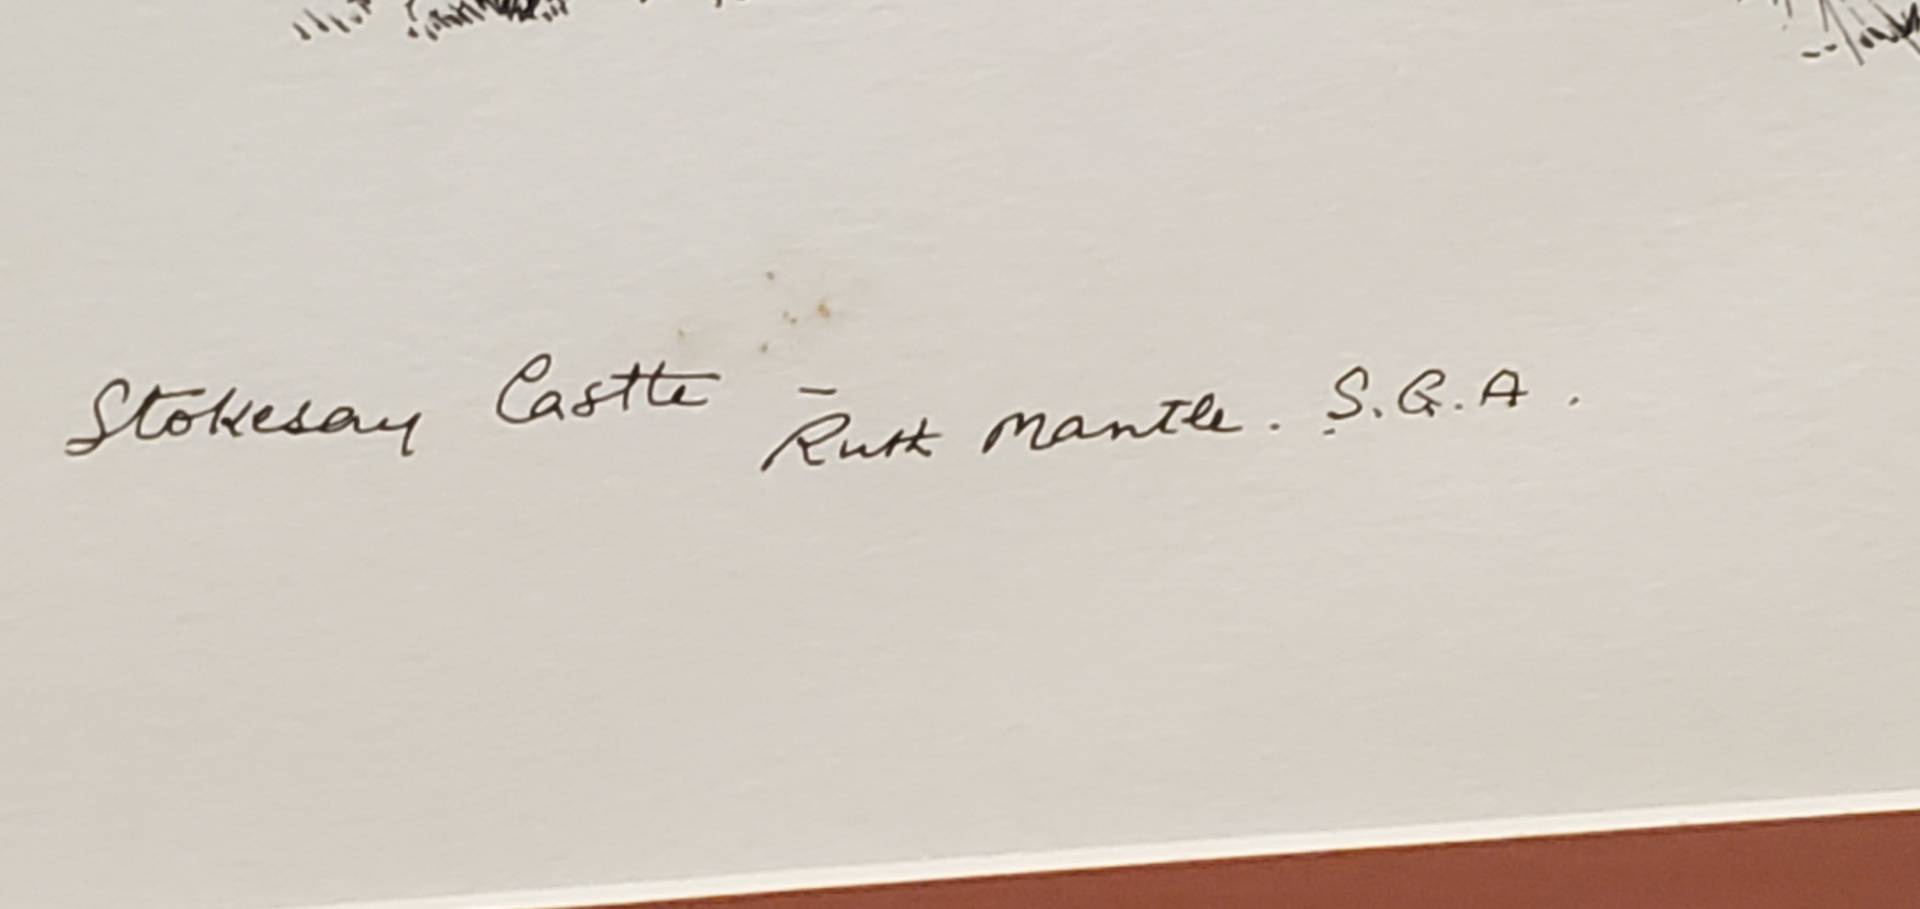 Stokesay Castle - Ruth Mantle. S.G.A.